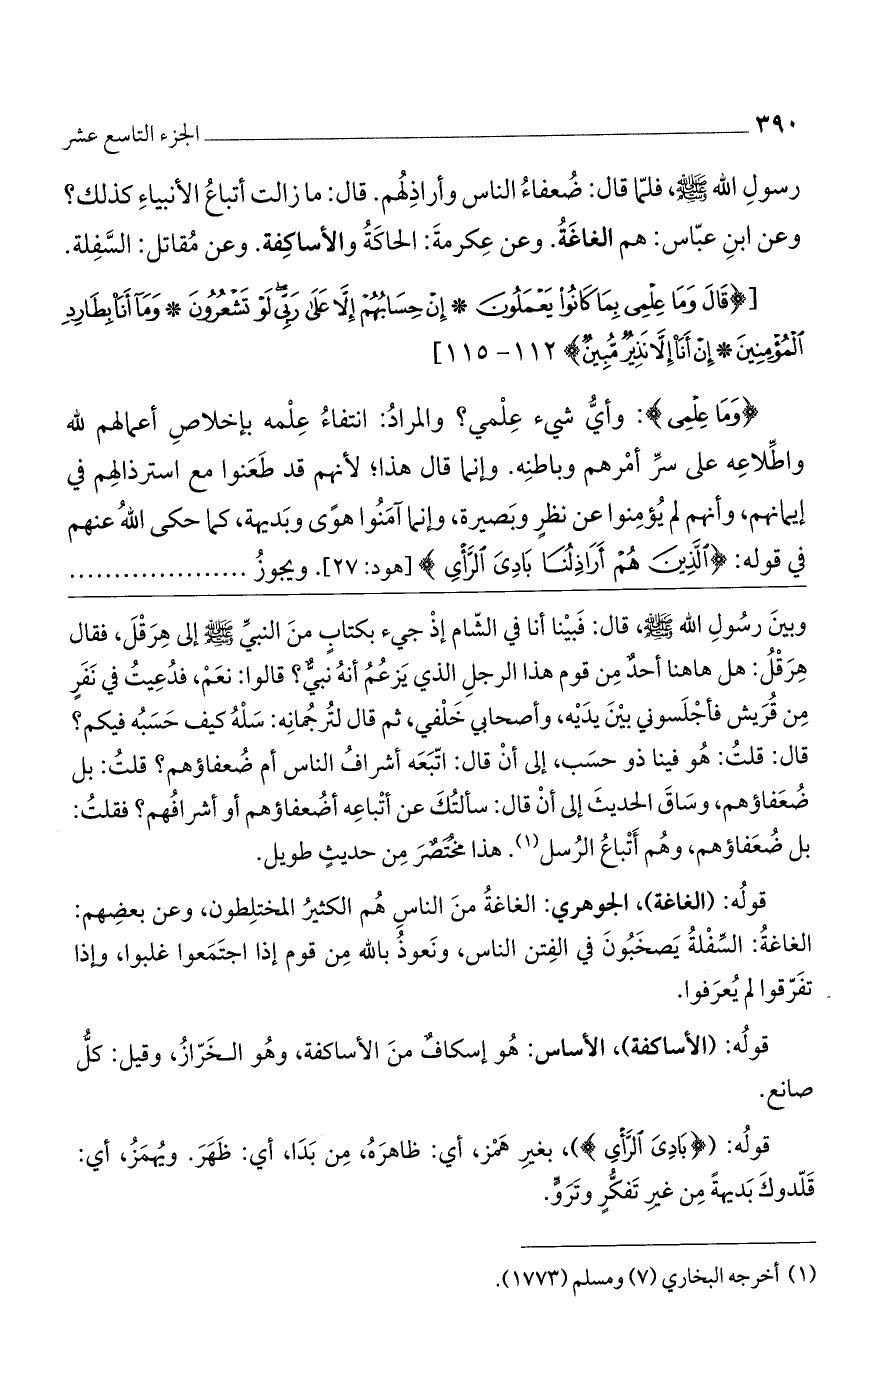 ٣٩٠ الجزء التاسع عشر
رسولِ الله ﷺ، فلمّا قال: ضُعفاءُ الناس وأراذِلُهم. قال: ما زالت أتباعُ الأنبياءِ كذلك؟
وعن ابنِ عبّاس: هم الغاغَةُ. وعن عِكرمةَ: الحاكَةُ والأساكِفة. وعن مُقاتل: السَّفِلة.
[﴿قَالَ وَمَا عِلْمِى بِمَا كَانُوا۟ يَعْمَلُونَ * إِنْ حِسَابُهُمْ إِلَّا عَلَىٰ رَبِّى لَوْ تَشْعُرُونَ * وَمَآ أَنَا۠ بِطَارِدِ
ٱلْمُؤْمِنِينَ * إِنْ أَنَا۠ إِلَّا نَذِيرٌ مُّبِينٌ﴾ ١١٢- ١١٥]
﴿وَمَا عِلْمِى﴾: وأيُّ شيء عِلْمي؟ والمرادُ: انتفاءُ عِلْمه بإخلاصِ أعمالهم لله
واطِّلاعِه على سرِّ أمْرهم وباطنِه. وإنما قال هذا؛ لأنهم قد طَعَنوا مع استرذالهِم في
إيمانهم، وأنهم لم يُؤمِنوا عن نظرٍ وبَصيرة، وإنما آمَنُوا هوًى وبَديهة، كما حكى اللهُ عنهم
في قوله: ﴿ٱلَّذِينَ هُمْ أَرَاذِلُنَا بَادِىَ ٱلرَّأْىِ﴾ [هود: ٢٧]. ويجوزُ ....................
وبينَ رسُولِ الله ﷺ، قال: فَبيْنا أنا في الشّام إذْ جيء بكتابٍ منَ النبيِّ ﷺ إلى هِرَقْلَ، فقال
هِرَقْلُ: هل هاهنا أحدٌ مِن قوم هذا الرجلِ الذي يَزعُمُ أنهُ نبيٌّ؟ قالوا: نعَمْ، فدُعِيتُ في نَفَرٍ
مِن قُرَيش فأجْلَسوني بيْنَ يدَيْه، وأصحابي خَلْفي، ثم قال لتُرجُمانِه: سَلْهُ كيف حَسَبُه فيكم؟
قال: قلتُ: هُو فينا ذو حسَب، إلى أنْ قال: اتّبَعَه أشرافُ الناس أم ضُعفاؤهم؟ قلتُ: بل
ضُعَفاؤهم، وسَاقَ الحديثَ إلى أنْ قال: سألتُكَ عن أتْباعِه أضُعفاؤهم أو أشرافُهم؟ فقلتُ:
بل ضُعَفاؤهم، وهُم أَتْباعُ الرُسل(١). هذا مختُصَرٌ مِن حديثٍ طويل.
قولُه: (الغاغة)، الجوهري: الغاغةُ منَ الناسِ هُم الكثيرُ المختلِطون، وعن بعضِهم:
الغاغةُ: السِّفْلةُ يَصخَبُونَ في الفِتن الناس، ونَعوذُ بالله مِن قوم إذا اجتَمَعوا غلبوا، وإذا
تفَرّقوا لم يُعرَفوا.
قولُه: (الأساكفة)، الأساس: هُو إسكافٌ منَ الأساكفة، وهُو الـخَرّازُ، وقيل: كلُّ
صانع.
قولُه: (﴿بَادِىَ ٱلرَّأْىِ﴾)، بغيرِ هَمْز، أي: ظاهرَهُ، مِن بَدَا، أي: ظَهَرَ. ويُهمَزُ، أي:
قَلّدوكَ بَديهةً مِن غيرِ تَفكُّرٍ وتَرَوٍّ.
(١) أخرجه البخاري (٧) ومسلم (١٧٧٣).